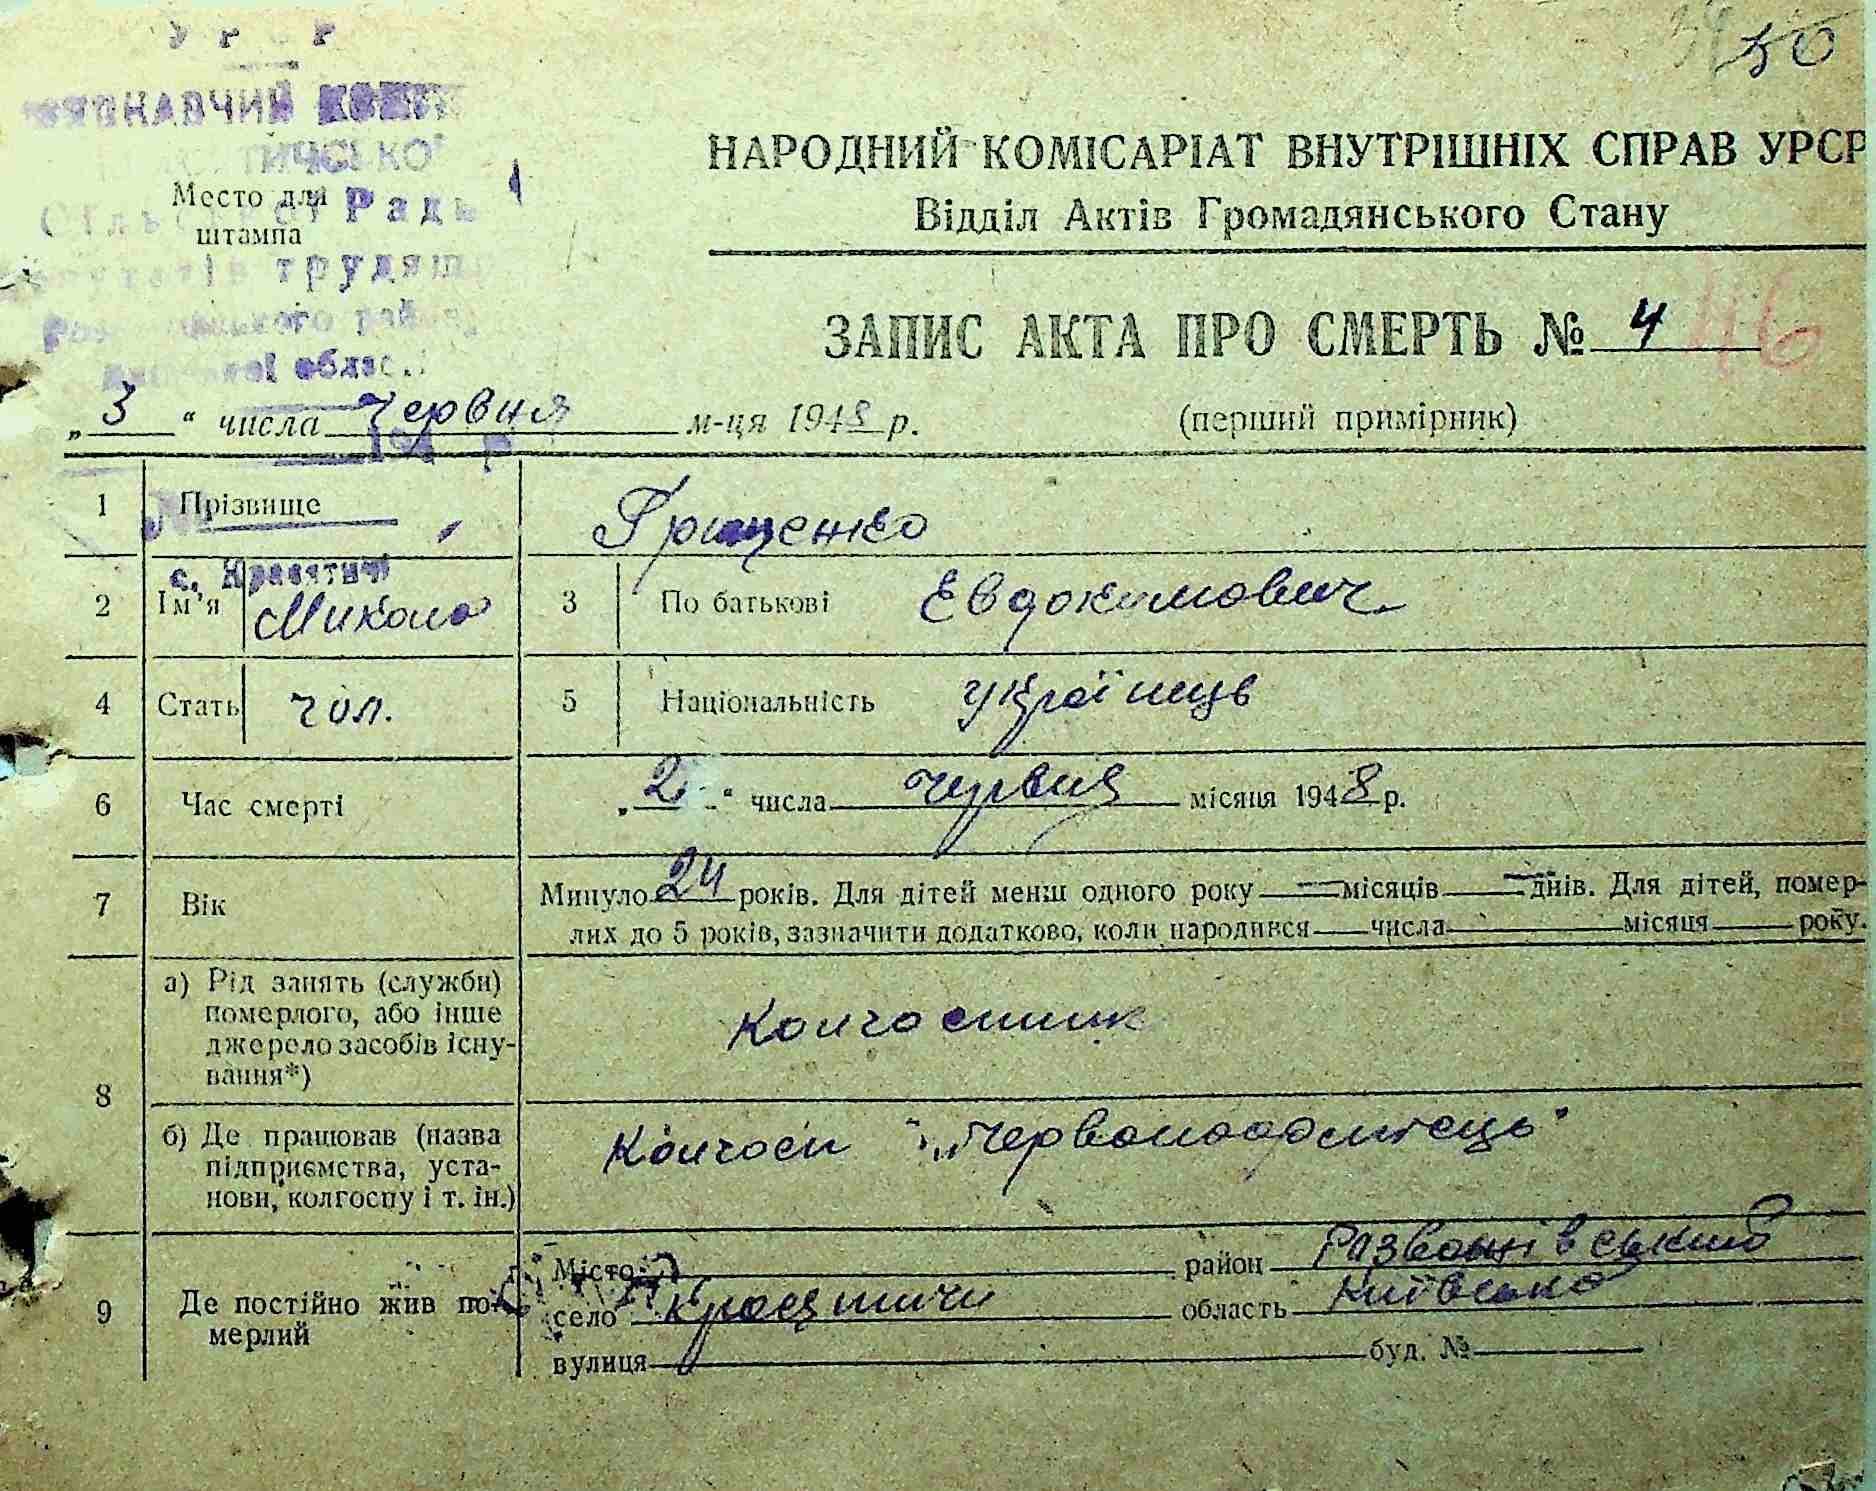 50
НАРОДНИЙ КОМІСАРІАТ ВНУТРІШНІХ СПРАВ УРСР
Відділ Актів Громадянського Стану
Место для
штампа
Ради
трудящ
району
області
ЗАПИС АКТА ПРО СМЕРТЬ № 4
46
„3“ числа Червня м-ця 1948 р. (перший примірник)
1 Прізвище Грищенко
2 Ім’я Микола 3 По батькові Евдокимович
4 Стать чол. 5 Національність українець
6 Час смерті „2“ числа червня місяця 1948 р.
7 Вік Минуло 24 років. Для дітей менш одного року — місяців — днів. Для дітей, помер-
лих до 5 років, зазначити додатково, коли народився числа місяця року.
8 а) Рід занять (служби)
померлого, або інше
джерело засобів існу-
вання*)
Колгоспник
б) Де працював (назва
підприємства, уста-
нови, колгоспу і т. ін.)
Колгосп „Червоноармієць"
9 Де постійно жив по-
мерлий
Місто район Розважівський
село Красятичи область Київська
вулиця буд. №